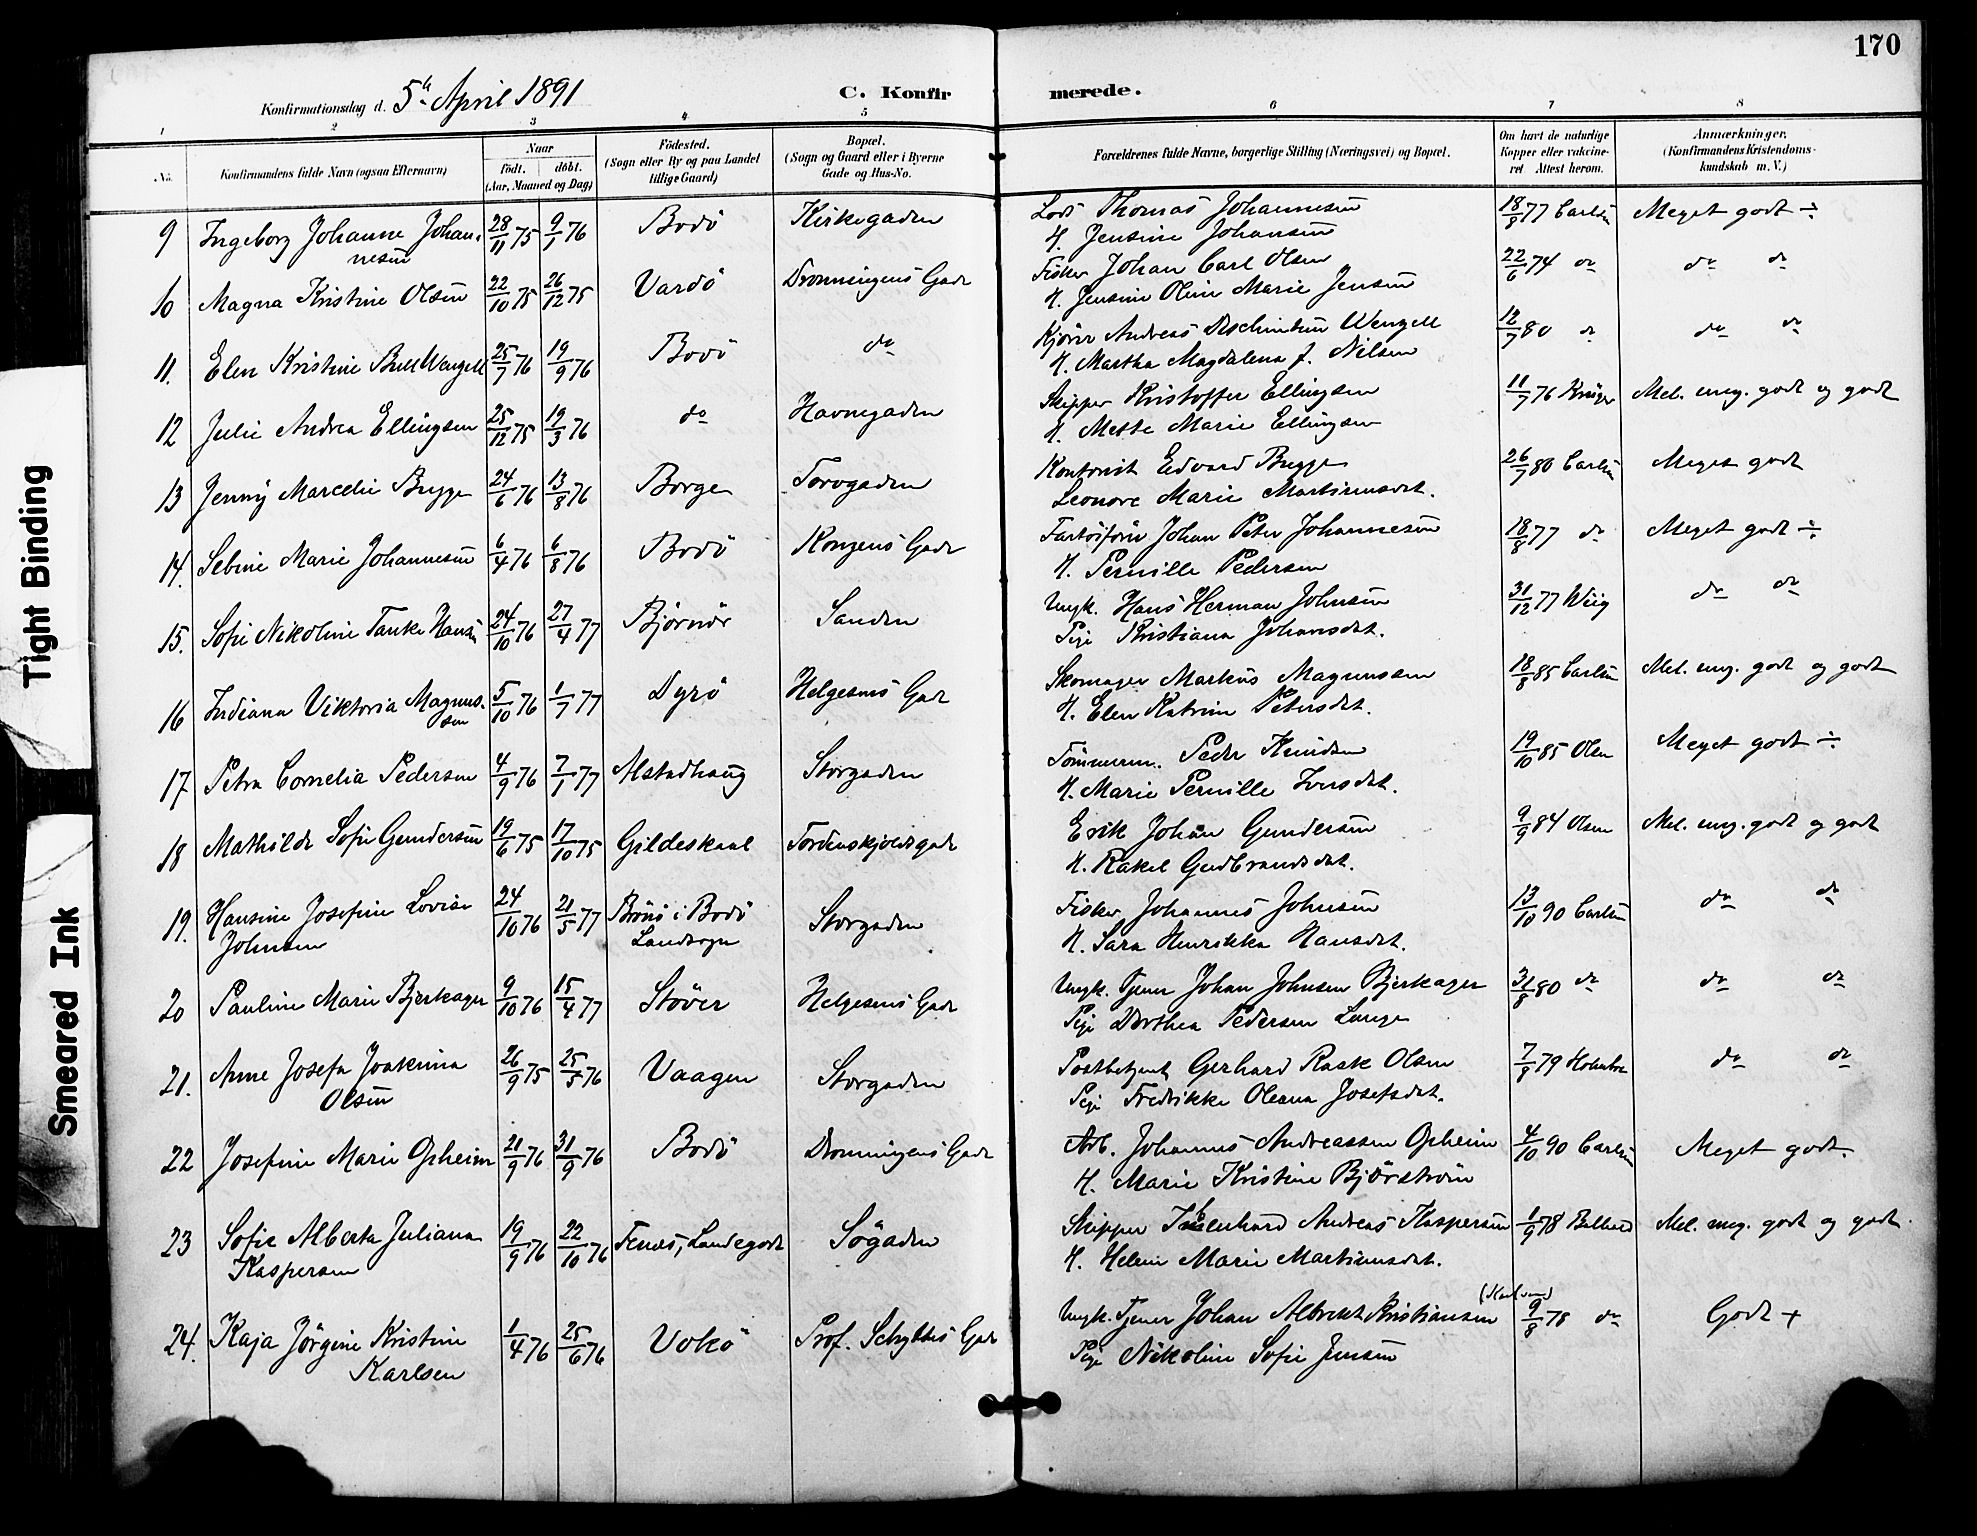 170
Konfirmationsdag d. 5te April 1891
C. Konfirmerede.
1 2 3 4 5 6 7 8
No. Konfirmandens fulde Navn (ogsaa Efternavn) Naar födt. döbt. (Aar, Maaned og Dag) Födested. (Sogn eller By og paa Landet tillige Gaard) Bopæl. (Sogn og Gaard eller i Byerne Gade og Hus-No. Forældrenes fulde Navne, borgerlige Stilling (Næringsvei) og Bopæl. Om havt de naturlige Kopper eller vakcineret Attest herom. Anmærkninger, (Konfirmandens Kristendomskundskab m. V.)
9 Ingeborg Johanne Johannesen 28/11 75 9/1 76 Bodö Kirkegaden Lods Thomas Johannesen 18/8 77 Carlsen Meget godt ÷
H. Jensine Johansen
10 Magna Kristine Olsen 22/10 75 26/12 75 Vardö Dronningens Gade Fisker Johan Carl Olsen 22/6 74 do do do
H. Jensine Oline Marie Jensen
11. Elen Kristine Bull Wengell 25/7 76 19/9 76 Bodö do Andreas Wengell 12/7 80 do do do
H. Martha Magdalena f. Nilsen
12 Julie Andrea Ellingsen 25/12 75 19/3 76 do Havnegaden Skipper Kristoffer Ellingsen 11/7 76 Krüger Mel. meg. godt og godt
H. Mette Marie Ellingsen
13 Jenny Marcelie Brygge 24/6 76 13/8 76 Borge Torvgaden Kontorist Edvard Brygge 26/7 80 Carlsen Meget godt
Leonore Marie Martinusdat.
14. Sebine Marie Johannesen 6/4 76 6/8 76 Bodö Kongens Gade Fartöiförer Johan Peter Johannesen 18/8 77 do Meget godt ÷
H. Pernille Pedersen
15. Sofie Nikoline Tanke Hansen 24/10 76 27/4 77 Björnör Sanden Ungk. Hans Herman Johnsen 31/12 77 Wiig do do
Pige Kristiana Johansdat.
16 Indiana Viktoria Magnussen 5/10 76 1/7 77 Dyrö Helgesens Gade Skomager Markus Magnussen 18/8 85 Carlsen Mel. meg. godt og godt
H. Elen Katrine Petersdat.
17 Petra Cornelia Pedersen 4/9 76 7/1 77 Alstadhaug Storgaden Tömmerm. Peder Knudsen 19/10 85 Olsen Meget godt ÷
H. Marie Pernille Iversdat.
18 Mathilde Sofie Gundersen 19/6 75 17/10 75 Gildeskaal Tordenskjoldsgade Erik Johan Gundersen 9/9 84 Olsen Mel. meg. godt og godt
H. Rakel Gudbrandsdat.
19. Hansine Josefine Lovise Johnsen 24/10 76 21/5 77 Bröns i Bodö Landsogn Storgaden Fisker Johannes Johnsen 13/10 90 Carlsen do do
H. Sara Henrikka Hansdat.
20 Pauline Marie Bjerkager 9/10 76 15/4 77 Stöver Helgesens Gade Ungk. Tjener Johan Johnsen Bjerkager 31/8 80 do do do
Pige Dorthea Pedersen Lange
21. Anne Josefa Joakima Olsen 26/9 75 25/5 76 Vaagen Storgaden Postbetjent Gerhard Rask Olsen 7/8 79 do do
Pige Fredrikke Oleana Josefsdat.
22 Josefine Marie Opheim 21/9 76 31/9 76 Bodö Dronningens Gade Arb. Johannes Andreassen Opheim 4/10 90 Carlsen Meget godt.
H. Marie Kristine Björström
23 Sofie Alberta Juliana Kaspersen 19/9 76 22/10 76 Fenes, Landegode Sögaden Skipper Andreas Kaspersen 1/9 78 Mel. meg. godt og godt.
H. Heline Marie Martinusdat.
24. Kaja Jörgine Kristine Karlsen 1/4 76 25/6 76 Vokö Prof. Schyttes Gade Ungk. Tjener Johan Albrekt Kristiansen (Karlsen) 9/8 78 do Godt +
Pige Nikoline Sofie Jensen
Tight Binding
Smeared Ink